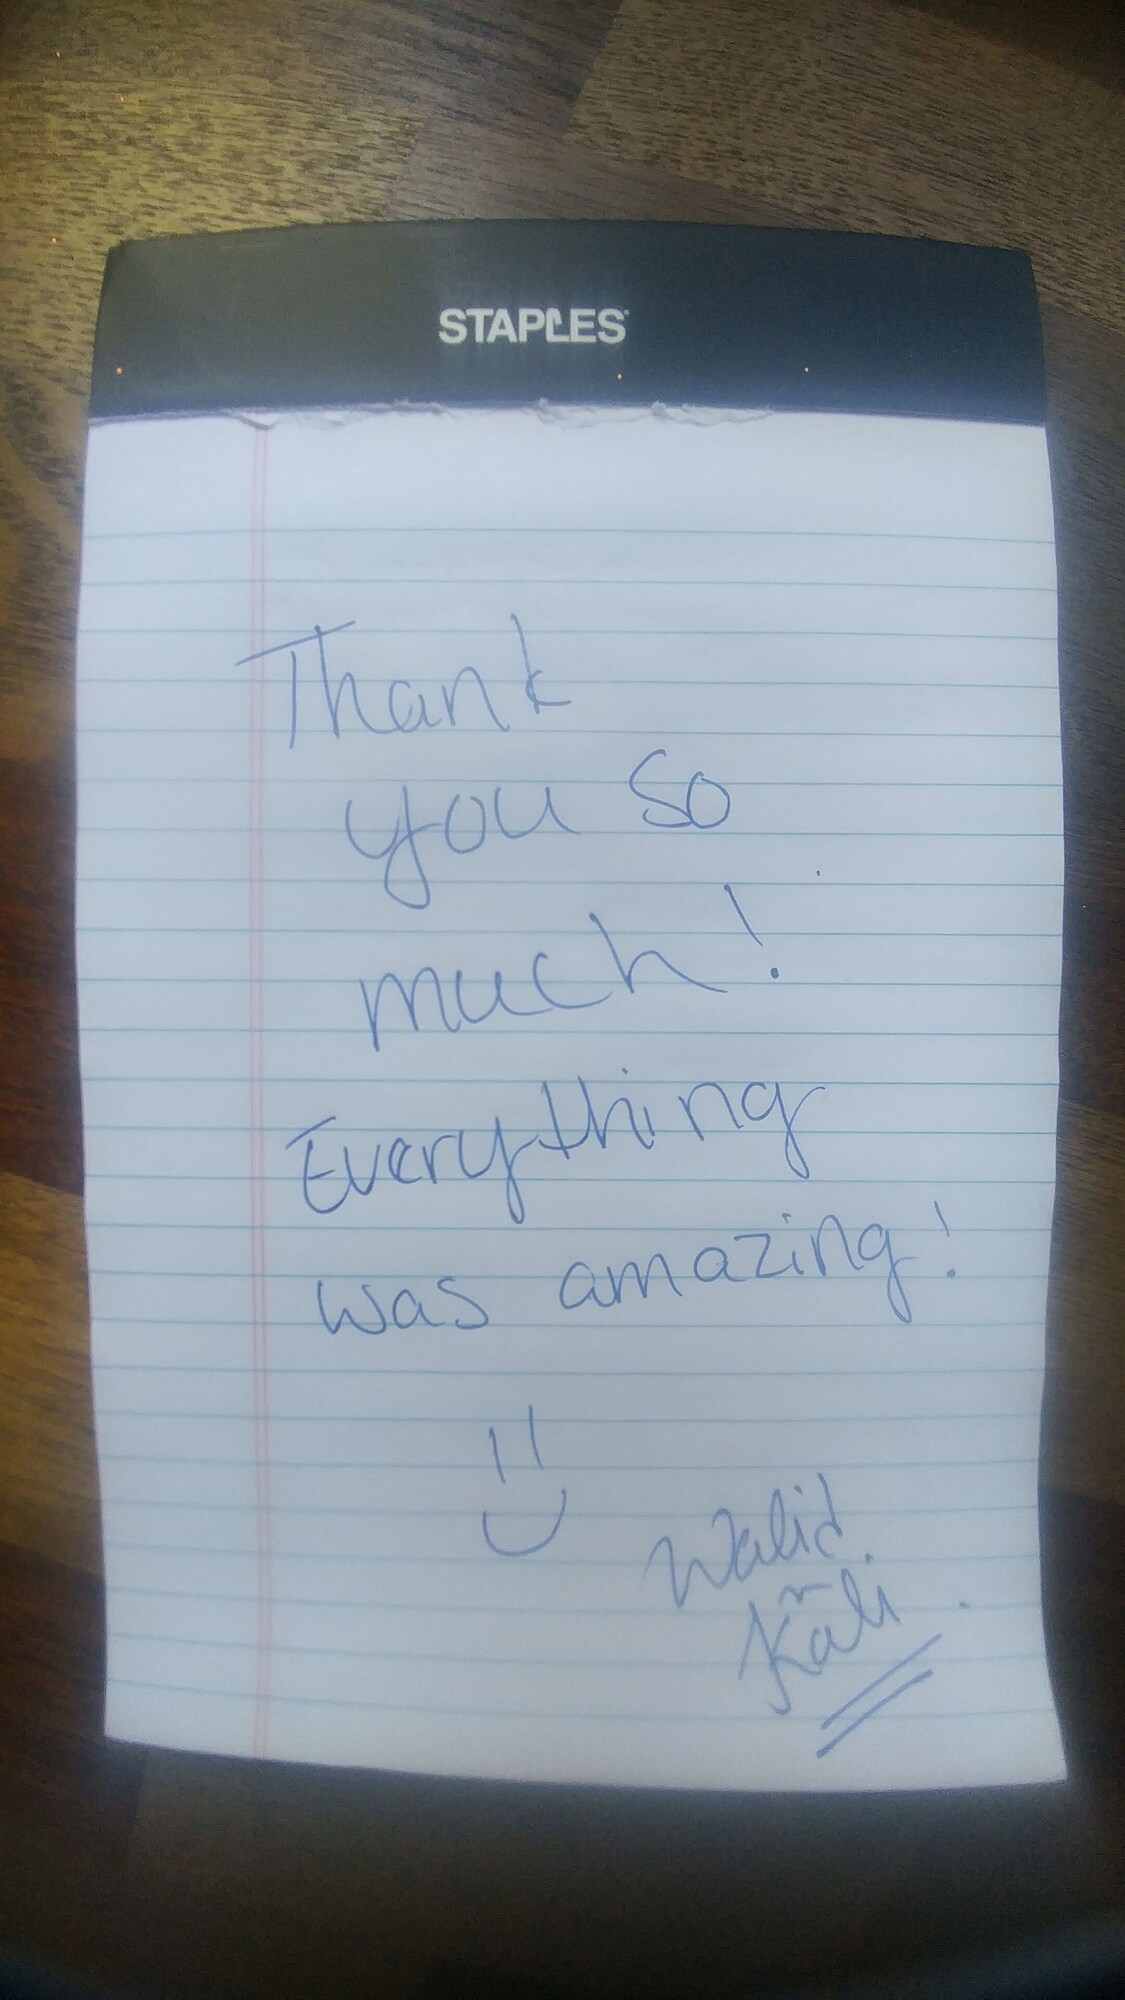 STAPLES
Thank
you so
much!
Everything
was amazing!
Walid
Kali